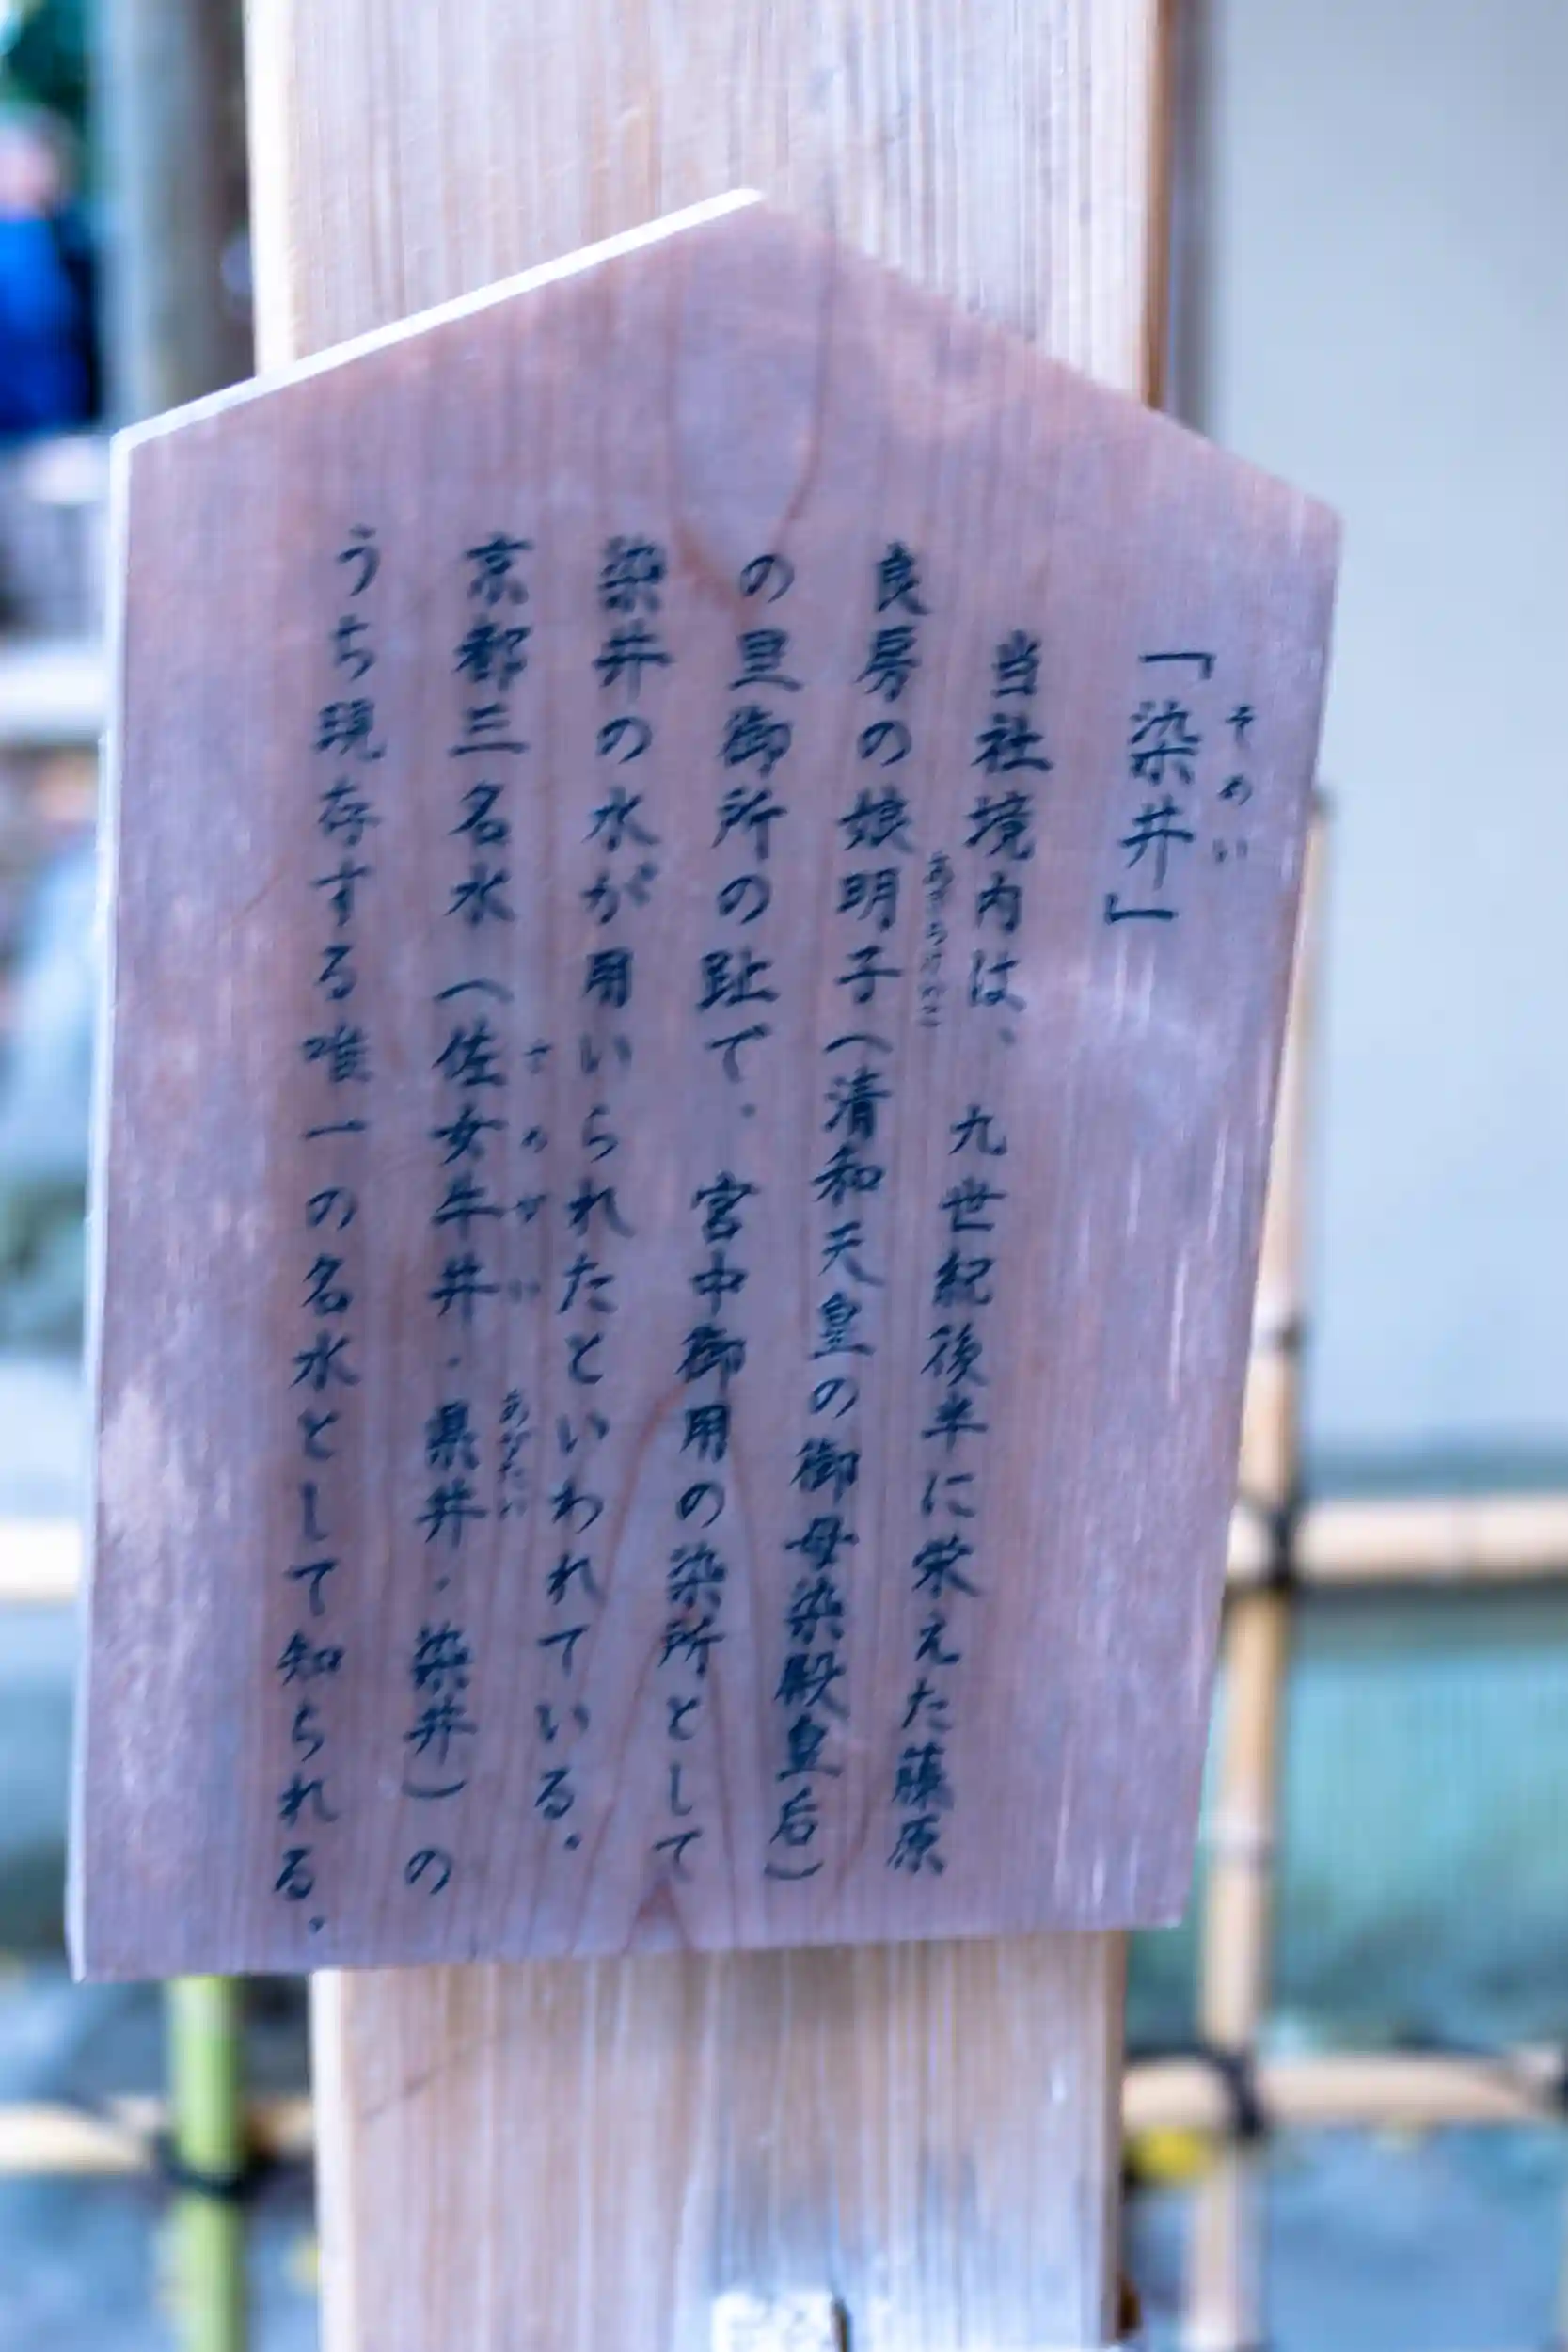 「染井」
そめい
当社境内は、九世紀後半に栄えた藤原
良房の娘明子(清和天皇の御母染殿皇后)
あきらけいこ
の里御所の趾で、宮中御用の染所として
染井の水が用いられたといわれている。
京都三名水(佐女牛井・県井・染井)の
さめがい
あがたい
うち現存する唯一の名水として知られる。